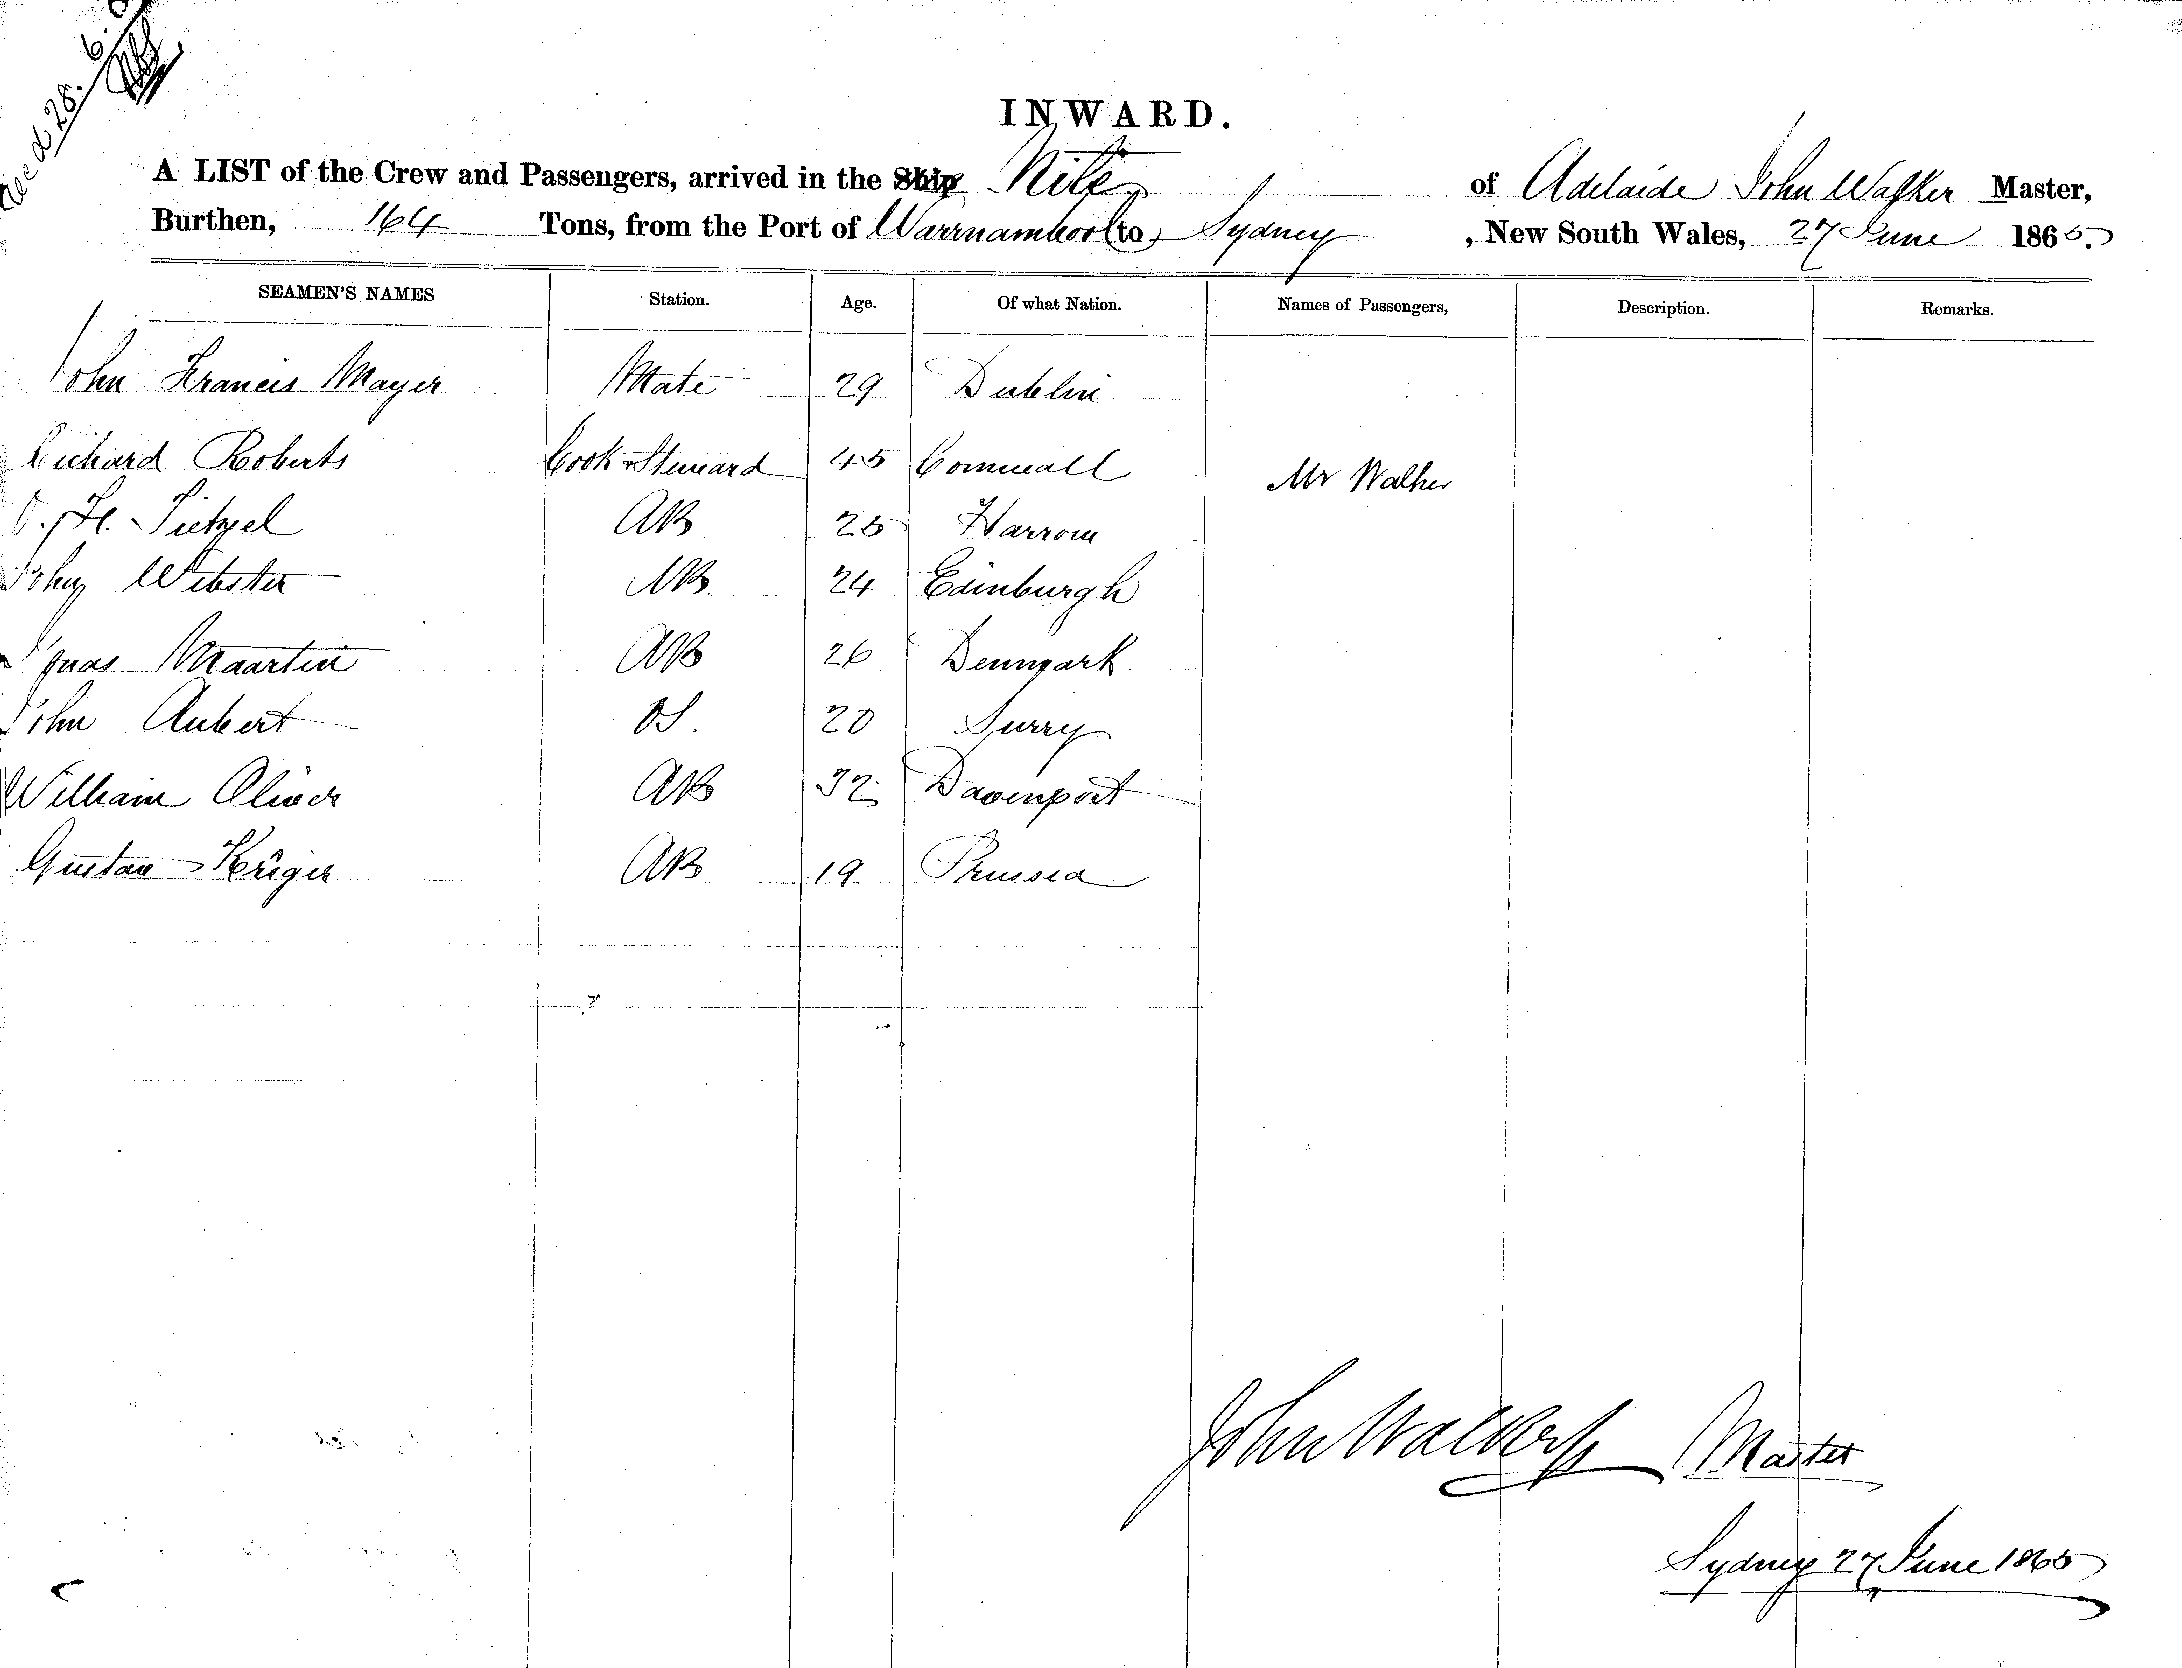 Rec'd 28. 6.
INWARD.
A LIST of the Crew and Passengers, arrived in the Ship Nile of Adelaide John Walker Master,
Burthen, 164 Tons, from the Port of Warrnambool to Sydney, New South Wales, 27 June 1865.
SEAMEN'S NAMES Station. Age. Of what Nation. Names of Passengers, Description. Remarks.
John Francis Mayer Mate 29 Dublin
Richard Roberts Cook & Steward 45 Cornwall Mr Walker
H. AB 25
John Webster AB 24 Edinburgh
Maartin AB 26 Denmark
John Aubert OS. 20 Surry
William Oliver AB 32 Davenport
Gustav Krüger AB 19 Prussia
John Walker Master
Sydney 27 June 1865